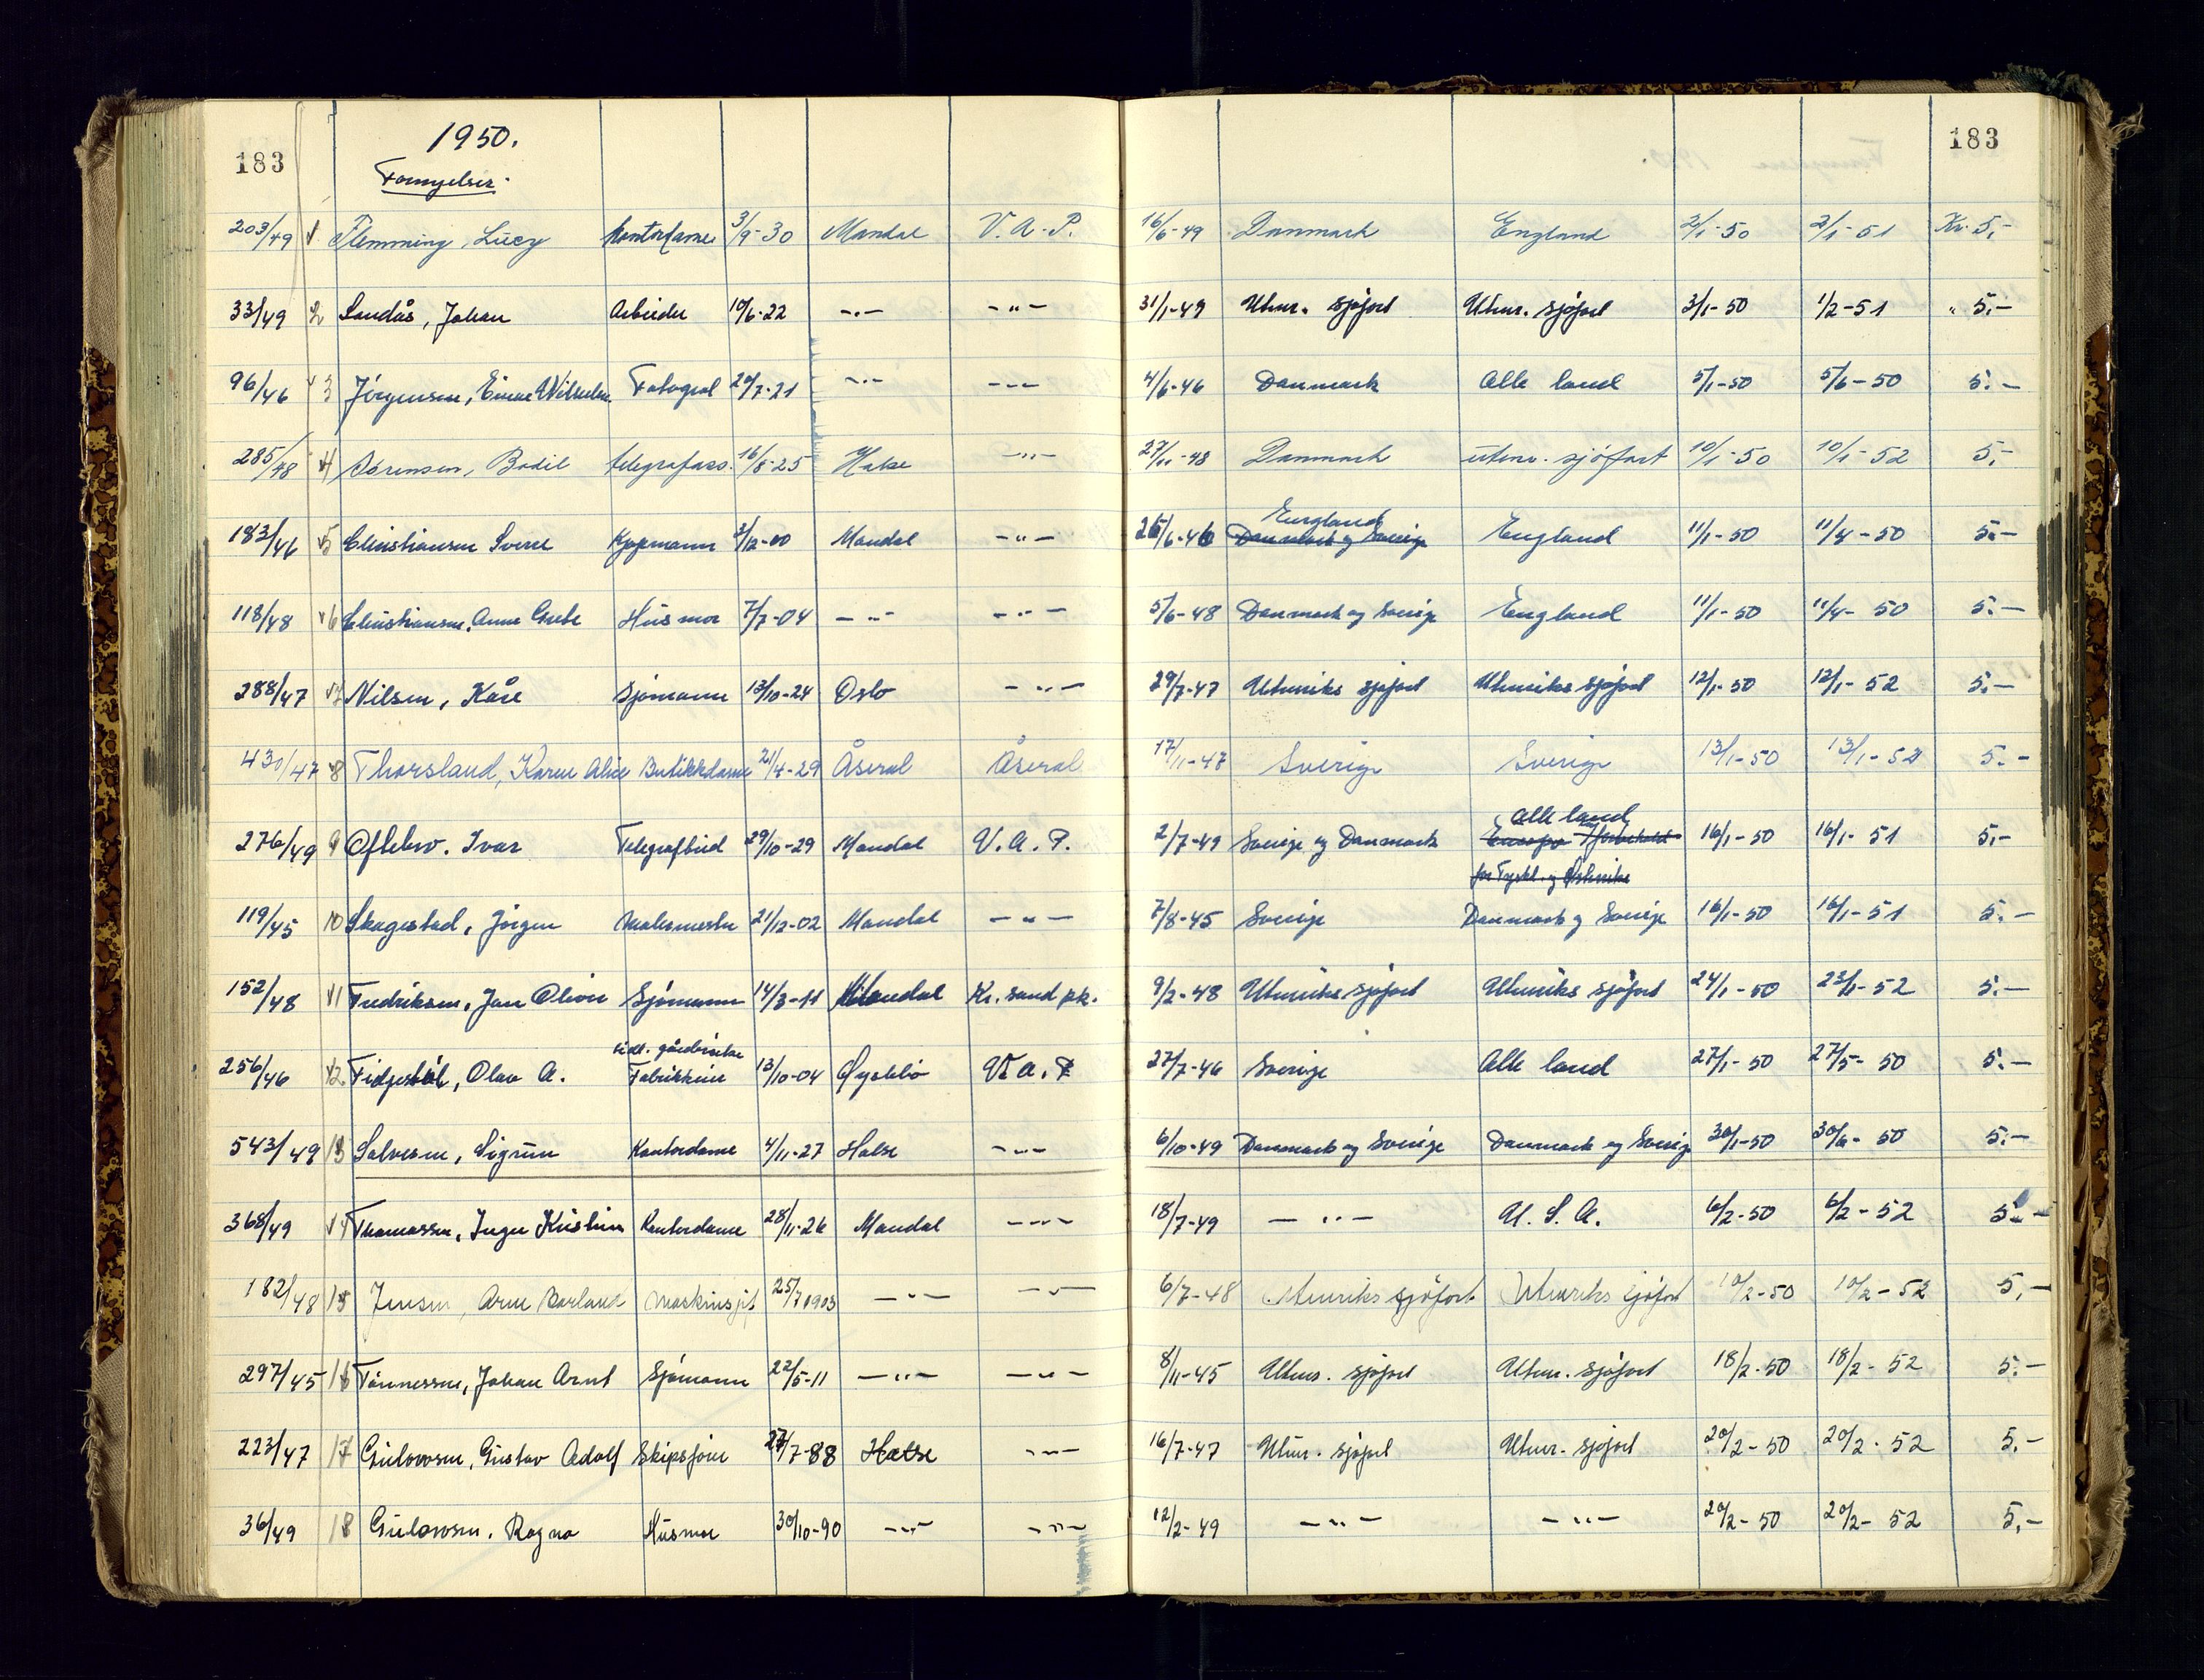 183 1950. 183
Fornyelser.
203/49 1 Flemming, Lucy Kontordame 3/9-30 Mandal V.A.P. 16/6-49 Danmark England 2/1-50 2/1-51 Kr. 5,-
33/49 2 Sandås, Johan Arbeider 10/6-22 -"- -"- 31/1-49 Utenr. sjøfart Utenr. sjøfart 3/1-50 1/2-51 " 5,-
96/46 3 Jörgensen, Einar Wilhelm Fotograf 20/7-21 -"- -"- 4/6-46 Danmark Alle land 5/1-50 5/6-50 5.-
285/48 4 Sörensen, Bodil telegrafass. 16/8-25 Halse -"- 27/11-48 Danmark utenr. sjöfart 10/1-50 10/1-52 5,-
England
183/46 5 Christiansen Sverre Kjøpmann 3/12-00 Mandal -"- 26/6-46 Danmark og Sverige England 11/1-50 11/4-50 5.-
118/48 6 Christiansen, Anna Grete Husmor 7/7-04 -"- -"- 5/6-48 Danmark og Sverige England 11/1-50 11/4-50 5.-
288/47 7 Nilsen, Kåre Sjømann 13/10-24 Oslo -"- 29/7-47 Utenriks sjøfart Utenriks sjøfart 12/1-50 12/1-52 5.-
430/47 8 Thorsland, Karen Alice Butikkdame 21/4-29 Åseral Åseral 17/11-47 Sverige Sverige 13/1-50 13/1-52 5.-
Alle land
276/49 9 Oftebro. Ivar Telegrafbud 29/10-29 Mandal V.A.P. 2/7-49 Sverige og Danmark Europa 16/1-50 16/1-51 5,-
for Tyskl. og Østerrike
119/45 10 Skagestad, Jörgen Malermester 21/12-02 Mandal -"- 7/8-45 Sverige Danmark og Sverige 16/1-50 16/1-51 5.-
152/48 11 Fredriksen, Jan Oliver Sjömann 14/3-11 Mandal Kr.sand pk. 9/2-48 Utenriks sjøfart Utenriks sjøfart 24/1-50 23/1-52 5.-
tidl. gårdbruker
256/46 12 Fidjestøl, Olav A. Fabrikkeier 13/10-04 Øyslebø V.A.P 27/7-46 Sverige Alle land 27/1-50 27/5-50 5.-
543/49 13 Salvesen, Sigrun Kontordame 4/11-27 Halse -"- 6/10-49 Danmark og Sverige Danmark og Sverige 30/1-50 30/6-50 5.-
368/49 14 Thomassen, Inger Kristine Kontordame 28/11-26 Mandal -"- 18/7-49 -"- U.S.A. 6/2-50 6/2-52 5.-
182/48 15 Jensen, Arne Maskinsjef 25/7 1903 -"- -"- 6/7-48 Utenriks sjöfart Utenriks sjöfart 10/2-50 10/2-52 5,-
297/45 16 Tönnessen, Johan Arnt Sjømann 22/5-11 -"- -"- 8/11-45 Utenr. sjøfart Utenr. sjøfart 18/2-50 18/2-52 5.-
223/47 17 Gulowsen, Gustav Adolf Skipsfører 27/7-88 Halse -"- 16/7-47 Utenr. sjøfart Utenr. sjøfart 20/2-50 20/2-52 5.-
36/49 18 Gulowsen, Ragna Husmor 30/10-90 -"- -"- 12/2-49 -"- -"- 20/2-50 20/2-52 5,-